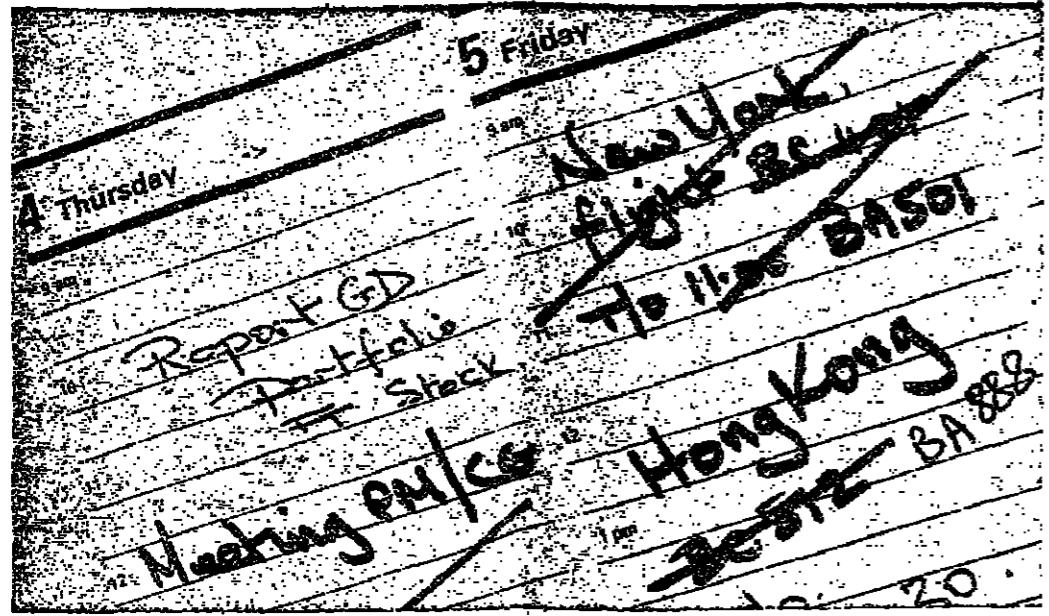 4 Thursday
9 am
10
Report GD
Portfolio
Stock
Meeting PM/CG
12
5 Friday
9 am
New York
flight
10
T/o 11.00 BA501
11
12
Hong Kong
BA888
1 pm
20